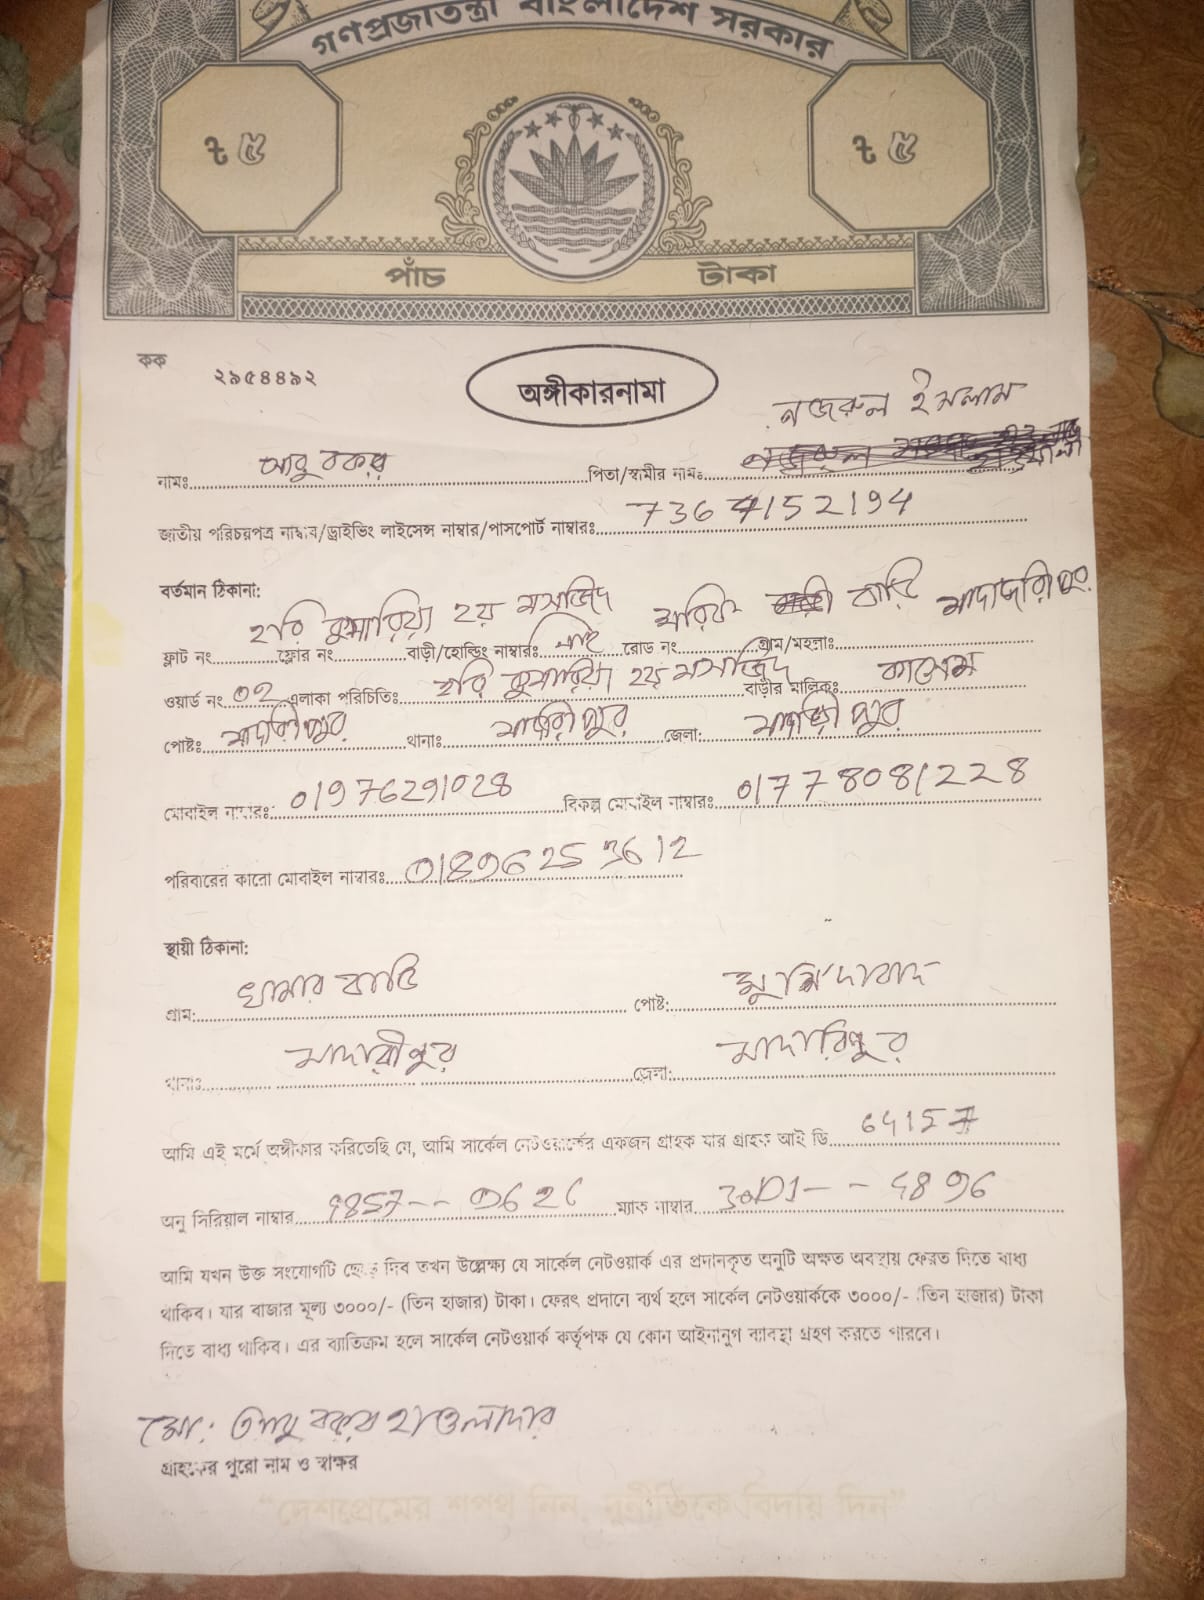 গণপ্রজাতন্ত্রী বাংলাদেশ সরকার
৳ ৫ ৳ ৫
পাঁচ টাকা
কক ২৯৫৪৪৯২
অঙ্গীকারনামা
নজরুল ইসলাম
নামঃ আবু বকর পিতা/স্বামীর নামঃ
জাতীয় পরিচয়পত্র নাম্বার/ড্রাইভিং লাইসেন্স নাম্বার/পাসপোর্ট নাম্বারঃ 7367152194
বর্তমান ঠিকানা:
হরি কুমারিয়া ২য় মসজিদ বাড়ি মাদারীপুর
ফ্লাট নং ফ্লোর নং বাড়ী/হোল্ডিং নাম্বারঃ নাই রোড নং গ্রাম/মহল্লাঃ
ওয়ার্ড নং ০২ এলাকা পরিচিতিঃ হরি কুমারিয়া ২য় মসজিদ বাড়ীর মালিকঃ কাসেম
পোষ্টঃ মাদারীপুর থানাঃ মাদারীপুর জেলা: মাদারীপুর
মোবাইল নাম্বারঃ 01976291028 বিকল্প মোবাইল নাম্বারঃ 01778081228
পরিবারের কারো মোবাইল নাম্বারঃ 01896253612
স্থায়ী ঠিকানা:
গ্রাম: খামার বাড়ি পোষ্ট: মুর্শিদাবাদ
থানাঃ মাদারীপুর জেলা: মাদারিপুর
আমি এই মর্মে অঙ্গীকার করিতেছি যে, আমি সার্কেল নেটওয়ার্কের একজন গ্রাহক যার গ্রাহক আই ডি 64157
অনু সিরিয়াল নাম্বার ম্যাক নাম্বার
আমি যখন উক্ত সংযোগটি ছেড়ে দিব তখন উল্লেক্ষ্য যে সার্কেল নেটওয়ার্ক এর প্রদানকৃত অনুটি অক্ষত অবস্থায় ফেরত দিতে বাধ্য
থাকিব। যার বাজার মূল্য ৩০০০/- (তিন হাজার) টাকা। ফেরৎ প্রদানে ব্যর্থ হলে সার্কেল নেটওয়ার্ককে ৩০০০/- (তিন হাজার) টাকা
দিতে বাধ্য থাকিব। এর ব্যাতিক্রম হলে সার্কেল নেটওয়ার্ক কর্তৃপক্ষ যে কোন আইনানুগ ব্যাবস্থা গ্রহণ করতে পারবে।
মো: আবু বকর হাওলাদার
গ্রাহকের পুরো নাম ও স্বাক্ষর
"দেশপ্রেমের শপথ নিন, দুর্নীতিকে বিদায় দিন"